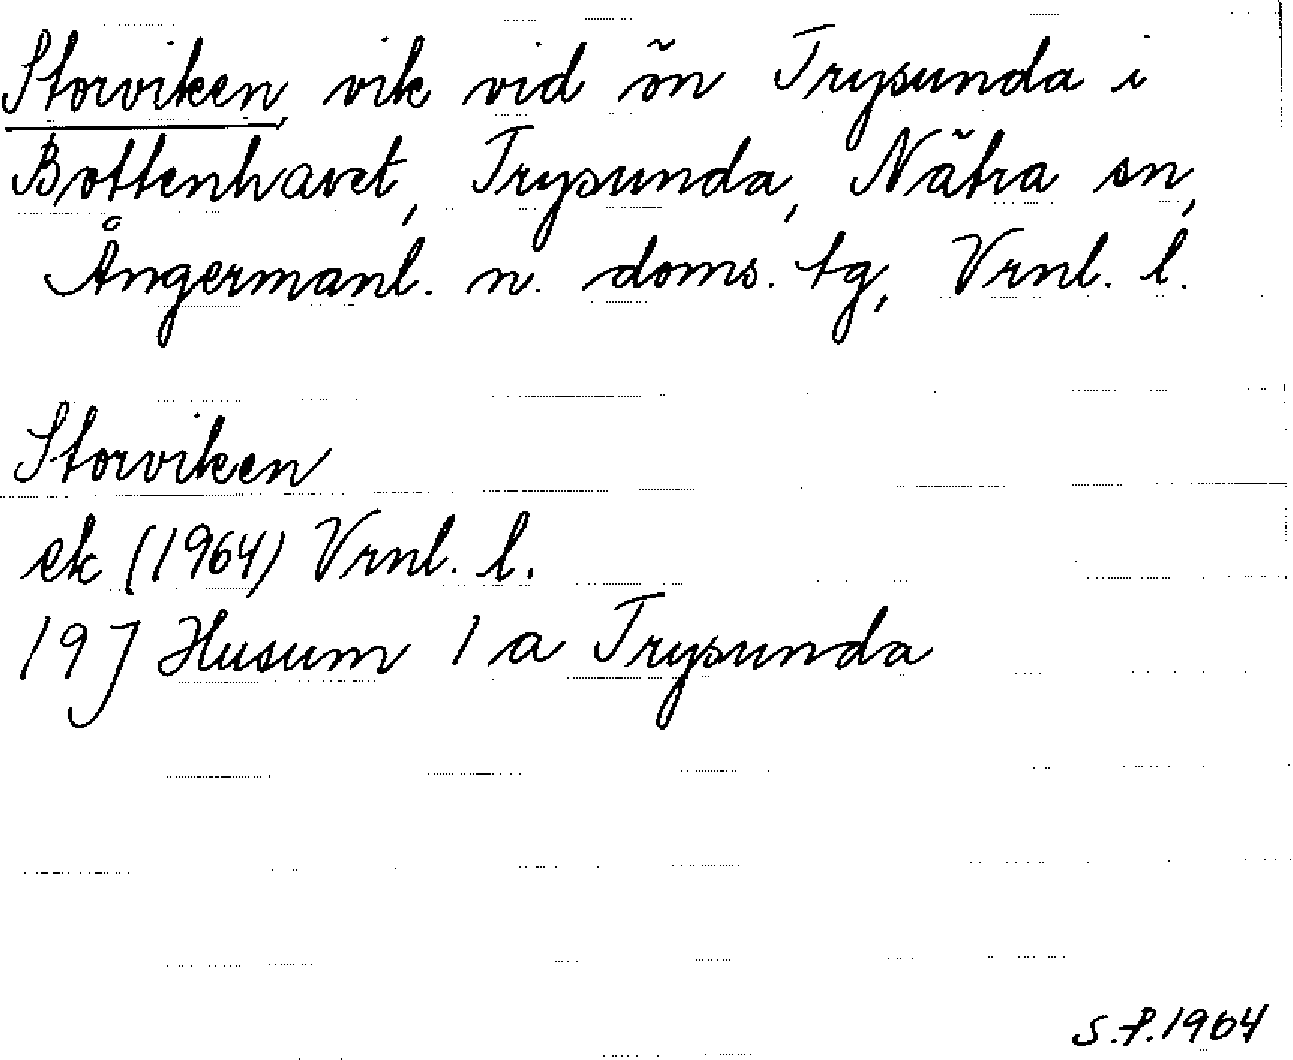 Storviken, vik vid ön Trysunda i
Bottenhavet, Trysunda, Nätra sn,
Ångermanl. n. doms. tg, Vrnl. l.
Storviken
ek (1964) Vrnl. l.
19J Husum 1 a Trysunda
S.P.1964